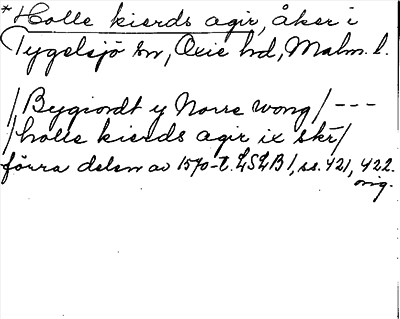 *Holle kierds agir, åker i
Tygelsjö sn, Oxie hd, Malm. l.
/Bygiordt y Norre wong/ ---
/holle kierds agir ix skr/
förra delen av 1570-t. LSLB 1, ss. 421, 422.
orig.